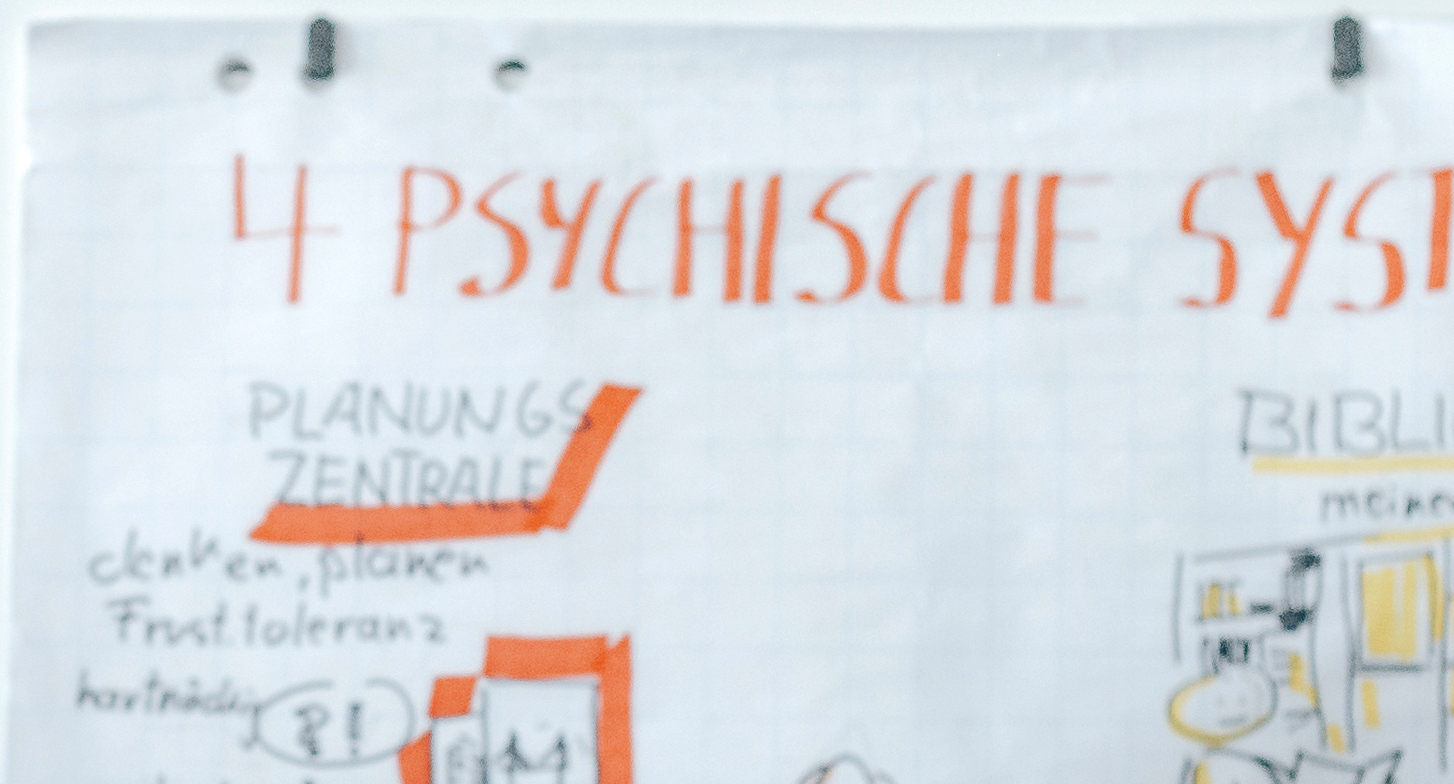 4 PSYCHISCHE SYST
PLANUNGS
ZENTRALE
denken, planen
Frust.toleranz
hartnäckig
?!
BIBLI
meine